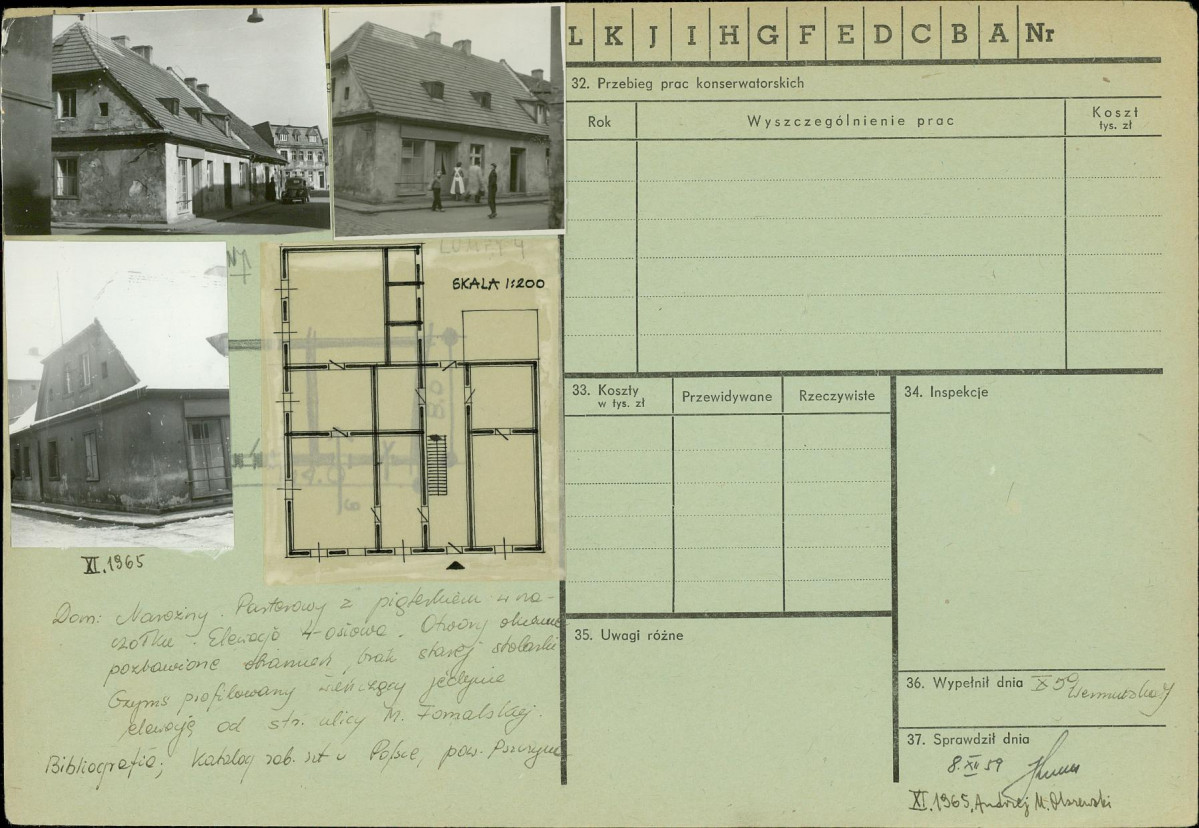 L K J I H G F E D C B A Nr
32. Przebieg prac konserwatorskich
Rok
Wyszczególnienie prac
Koszt
tys. zł
SKALA 1:200
8.0
33. Koszty
w tys. zł
Przewidywane
Rzeczywiste
34. Inspekcje
XI.1965
Dom: Narożny. Parterowy z pięterkiem w na-
czółku. Elewacja 4-osiowa. Otwory okienne
pozbawione obramień, brak starej stolarki
Gzyms profilowany wieńczący jedynie
elewację od str. ulicy M. Fornalskiej.
Bibliografia; Katalog zab. szt w Polsce, pow. Pszczyna
35. Uwagi różne
36. Wypełnił dnia X 59
37. Sprawdził dnia
8.XII 59
XI.1965, Andrzej M. Olszewski